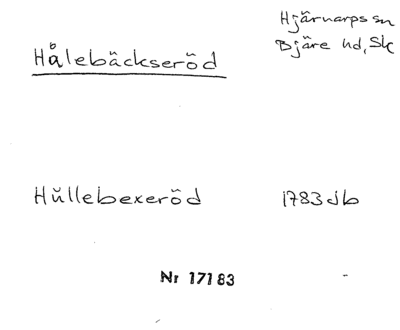 Hålebäckseröd
Hjärnarps sn
Bjäre hd, Sk
Hŭllebexeröd 1783 Jb
Nr 17183